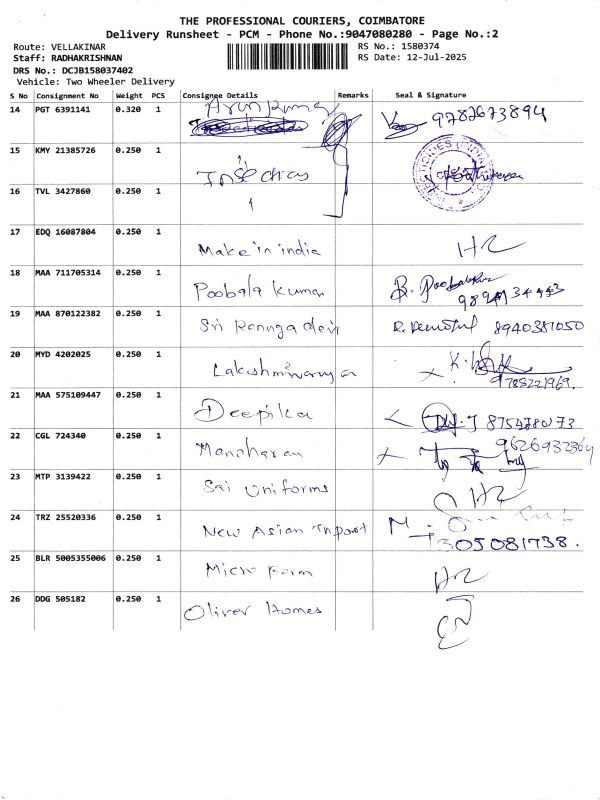 THE PROFESSIONAL COURIERS, COIMBATORE
Delivery Runsheet - PCM - Phone No.:9047080280 - Page No.:2
Route: VELLAKINAR
RS No.: 1580374
Staff: RADHAKRISHNAN
RS Date: 12-Jul-2025
DRS No.: DCJB158037402
Vehicle: Two Wheeler Delivery
S No Consignment No Weight PCS Consignee Details Remarks Seal & Signature
14 PGT 6391141 0.320 1 Arun Kumar
15 KMY 21385726 0.250 1
16 TVL 3427860 0.250 1
17 EDQ 16087804 0.250 1 Make in india
18 MAA 711705314 0.250 1 Poobala Kumar
19 MAA 870122382 0.250 1 Sri Rannga devi 8940387050
20 MYD 4202025 0.250 1 9788221969.
21 MAA 575109447 0.250 1 Deepika
22 CGL 724340 0.250 1 Manoharan
23 MTP 3139422 0.250 1 Sai Uniforms
24 TRZ 25520336 0.250 1 New Asian Inport
25 BLR 5005355006 0.250 1 Micro Farm
26 DDG 505182 0.250 1 Oliver Homes